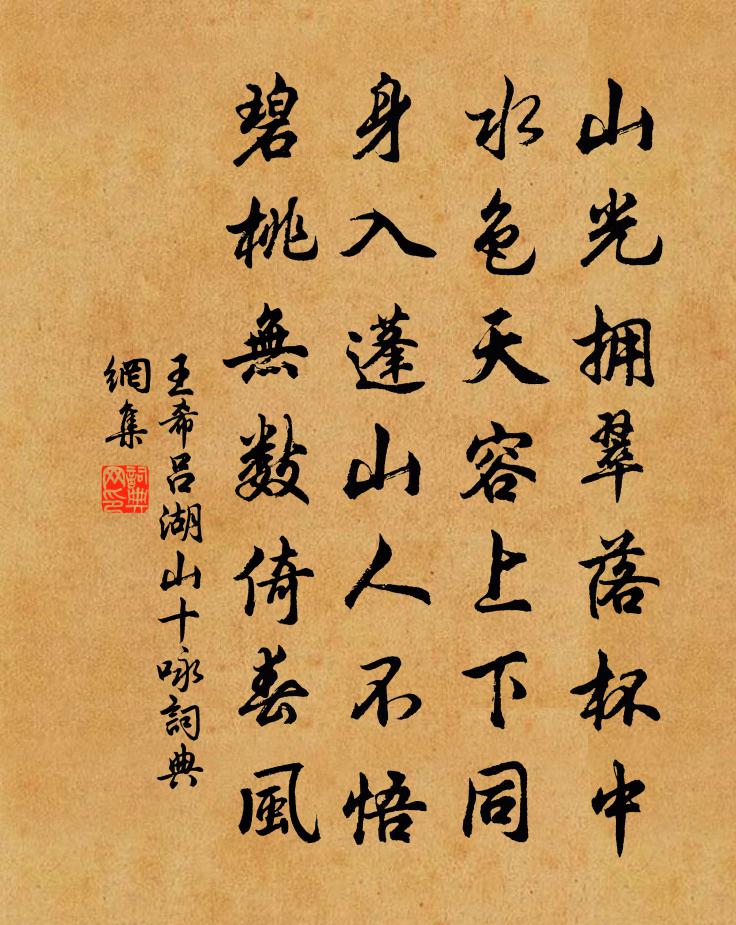 山光拥翠落杯中
水色天容上下同
身入蓬山人不悟
碧桃無数倚春風
王希呂湖山十咏詞典
網集
詞典
网印